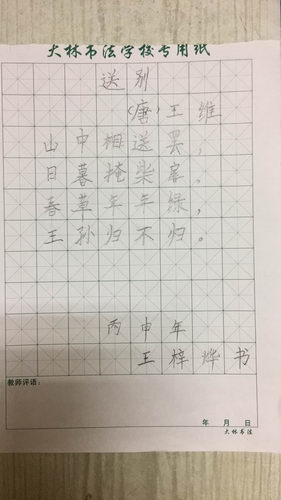 大林书法学校专用纸
送别
（唐）王维
山中相送罢，
日暮掩柴扉。
春草年年绿，
王孙归不归。
丙申年
王梓烨书
教师评语：
年 月 日
大林书法